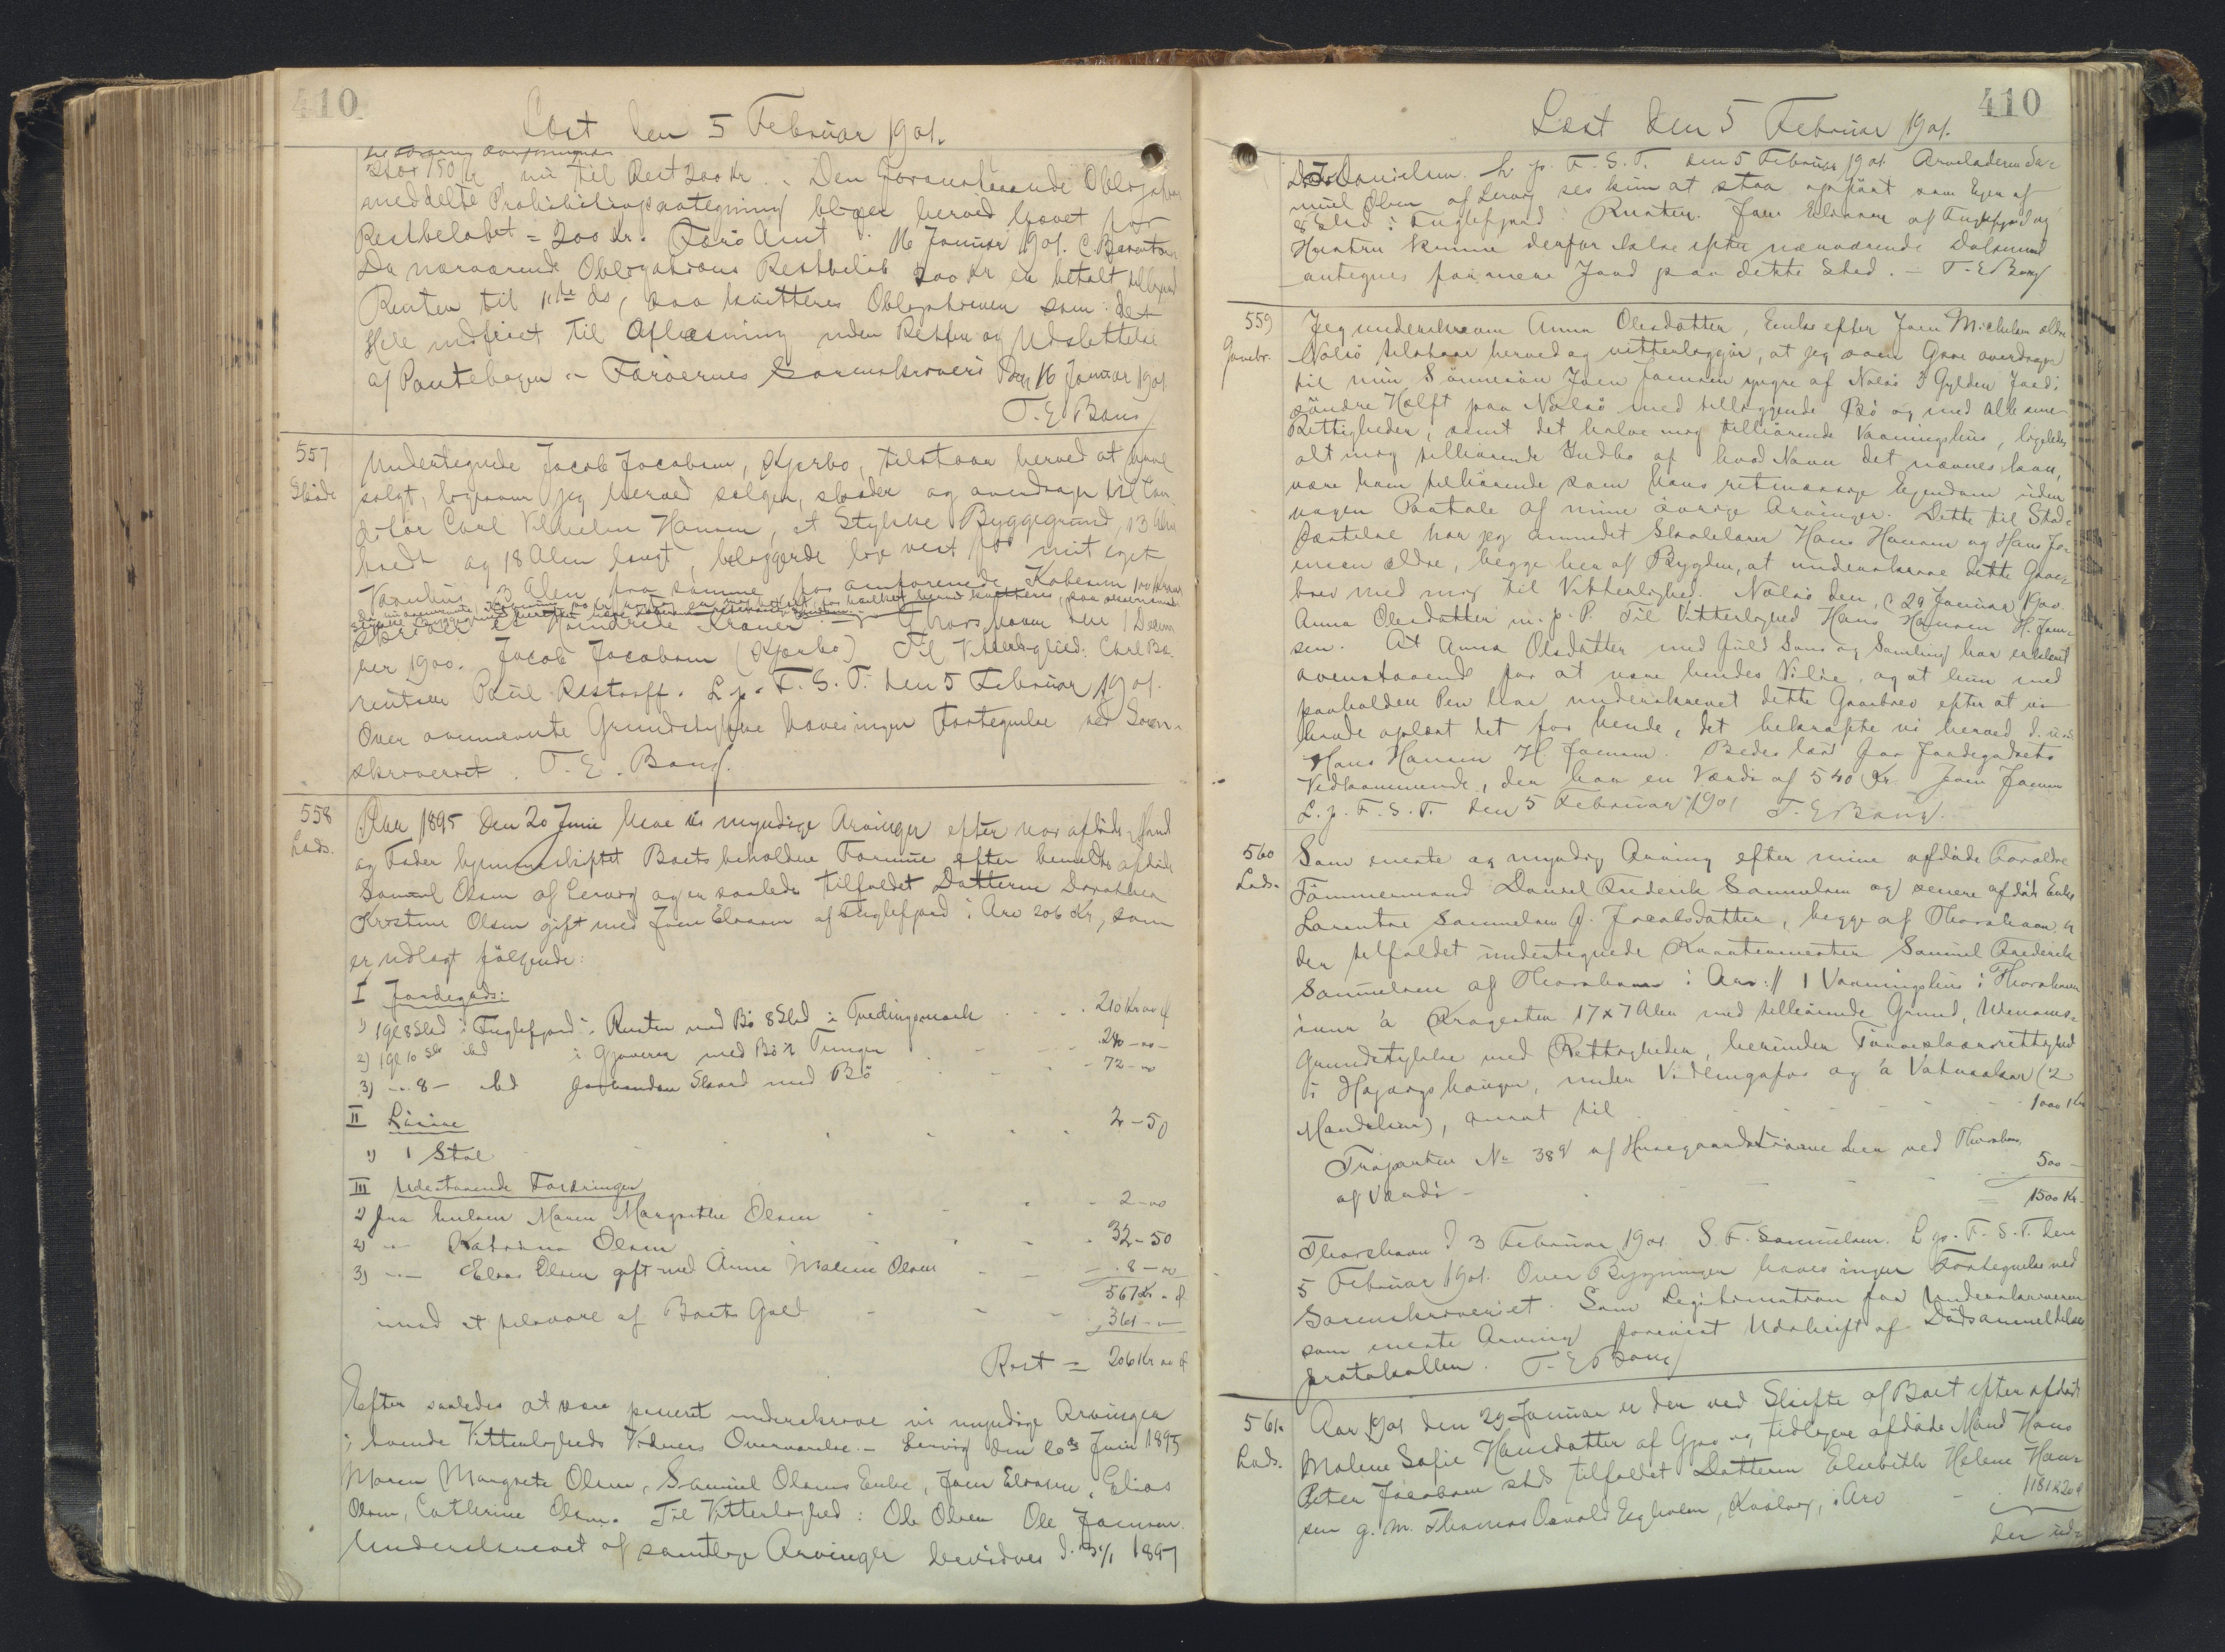 410
Læst den 5 Februar 1901.
Stor 150 Kr nu til Rest 200 Kr. Den foranstaaende Obligation
meddelte Prohibitivpaategning bliver herved hævet for
Restbeløbet = 200 Kr. Færø Amt 16 Januar 1901. C. Bærentsen
Da nærværende Obligations Restbeløb 200 Kr er betalt tilligemed
Renten til 11te ds, saa kvitteres Obligationen som i det
Hele indfriet til Aflæsning uden Retten og Udslettelse
af Pantebogen. Færøernes Sorenskriveri den 16 Januar 1901
T. E. Bang
557
Skøde
Undertegnede Jacob Jacobsen, Kjerbo, tilstaar herved at have
solgt, ligesom jeg herved sælger, skøder og overdrager til Con
ditor Carl Vilhelm Hansen, et Stykke Byggegrund, 13 Alen
bredt og 18 Alen langt, beliggende lige vest for mit eget
Vaanhus, 3 Alen fra samme for omforenede Købesum 100 Kroner
skriver et Hundrede Kroner. Thorshavn den 1 Decem
ber 1900. Jacob Jacobsen (Kjærbo) Til Vitterlighed: Carl Bæ-
rentsen Poul Restorff. L. p. F. S. T. den 5 Februar 1901.
Over ovennævnte Grundstykke haves ingen Fortegnelse ved Soren-
skriveriet. T. E. Bang.
558
Lods.
Aar 1895 den 20 Juni have vi myndige Arvinger efter vor afdøde Mand
og Fader hjemmeskiftet Boets beholdne Formue efter bemeldte afdøde
Samuel Olsen af Lervig og er saaledes tilfaldet Datteren Dorothea
Kristine Olsen gift med Joen Eliasen af Fuglefjord i Arv 206 Kr, som
er udlagt følgende:
I Jordegods:
1) 1 Gl 8 Skd i Fuglefjord i Runten med Bø 8 Skd i Tvedingsmark 210 Kr 00 Ø
2) 1 Gl 10 Sk ibd i Gjoveren med Bø Tungen 240 - 00 -
3) - 8 - ibd Skaard med Bø 72 - 00
II Løsøre
1) 1 Stol 2 - 50
III Udestaaende Fordringer
1) fra Enken Maren Margrethe Olsen 2 - 00
2) - Katrina Olsen 32 - 50
3) - Elias Olsen gift med Anne Malene Olsen 8 - 00
567 Kr - Ø
imod at tilsvare af Boets Gæld 361 - -
Rest = 206 Kr 00 Ø
Efter saaledes at være passeret underskrive vi myndige Arvinger
i hosende Vitterligheds Vidners Overværelse. Lervig den 20de Juni 1895
Maren Margrete Olsen, Samuel Olsens Enke, Joen Eliasen, Elias
Olsen, Cathrine Olsen. Til Vitterlighed: Ole Olsen Ole Joensen.
Underskrevet af samtlige Arvinger bevidnes d. 1897
410
Læst den 5 Februar 1901.
Danielsen. L. p. F. S. T. den 5 Februar 1901 Arveladeren Sa-
muel Olsen af Lervig ses kun at staa opført som Ejer af
8 Skd i Fuglefjord i Runten. Joen Eliasen af Fuglefjord og
Hustru kunne derfor ikke efter nærværende Dokument
antegnes for mere Jord paa dette Sted. - T. E. Bang
559
Gavebr.
Jeg underskrevne Anna Olesdatter, Enke efter Joen Michelsen ældre
Nolsø tilstaar herved og vitterliggjør, at jeg som Gave overdrager
til min Sønnesøn Joen Joensen yngre af Nolsø 3 Gylden Jord i
søndre Hælft paa Nolsø med tilliggende Bø og med alle sine
Rettigheder, samt det halve mig tilhørende Vaaningshus, ligeledes
alt mig tilhørende Indbo af hvad Navn det nævnes kan,
være ham tilhørende som hans retmæssige Ejendom uden
nogen Paatale af mine øvrige Arvinger. Dette til Stad-
fæstelse har jeg anmodet Skolelærer Hans Hansen og Hans Jo-
ensen ældre, begge her af Bygden, at underskrive dette Gave-
brev med mig til Vitterlighed. Nolsø den 29 Januar 1900.
Anna Olesdatter m. p. P. Til Vitterlighed Hans Hansen H. Joen-
sen. At Anna Olsdatter med fuld Sans og Samling har erklæret
ovenstaaende for at være hendes Vilje, og at hun med
paaholden Pen har underskrevet dette Gavebrev efter at vi
havde oplæst det for hende, det bekræfte vi herved d. u. s.
Hans Hansen H Joensen. Bedes læst for Jordegodsets
Vedkommende, der har en Værdi af 540 Kr. Joen Joensen
L. p. F. S. T. den 5 Februar 1901 T. E Bang.
560
Lods.
Som eneste og myndig Arving efter mine afdøde Forældre
Tømmermand Daniel Frederik Samuelsen og senere afdøde Enke
Larentse Samuelsen f. Jacobsdatter, begge af Thorshavn, er
der tilfaldet undertegnede Kvartermester Samuel Frederik
Samuelsen af Thorshavn i Arv: // 1 Vaaningshus i Thorshavn
inni á Kragesten 17 x 7 Alen med tilhørende Grund, Udenoms-
Grundstykke med Rettigheder, herunder Tørveskaarsrettighed
i Hojargshaugen, under Villingafos og á Vatnaskor (2
Mandslun), ansat til 1000 Kr
Trøparten No 38 af Husegaardstrøerne her ved Thorshavn
af Værdi 500 -
1500 Kr -
Thorshavn d 3 Februar 1901 S. F. Samuelsen. L. p. F. S. T. den
5 Februar 1901. Over Bygningen haves ingen Fortegnelse ved
Sorenskriveriet. Som Legitimation for Underskriveren
som eneste Arving forevist Udskrift af Dødsanmeldelses-
protokollen. T. E Bang
561.
Lods.
Aar 1901 den 29 Januar er der ved Skifte af Boet efter afdøde
Malene Sofie Hansdatter af Gjov og tidligere afdøde Mand Hans
Peter Jacobsen stds tilfaldet Datteren Elsebeth Helene Han-
sen g. m. Thomas Osvald Egholm, Kvalvig, i Arv 1181 Kr 20 Ø
der ud-